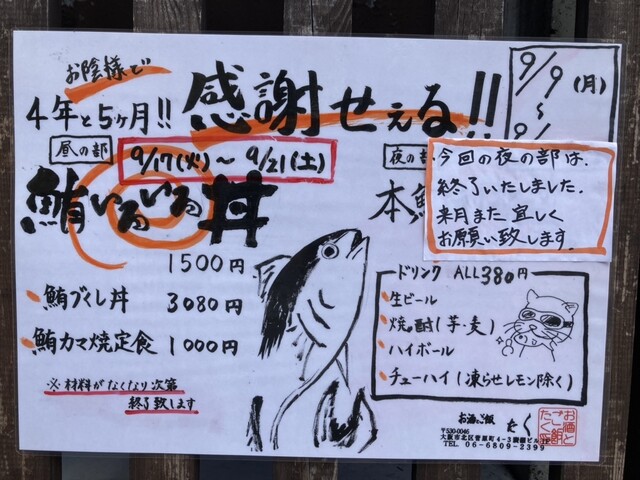 お陰様で
4年と5ヶ月!! 感謝せぇる!!
9/9(月)
～
昼の部
9/17(火)～9/21(土)
鮪いろいろ丼
1500円
鮪づくし丼 3080円
鮪カマ焼定食 1000円
※材料がなくなり次第
終了致します
夜の部
本鮪
今回の夜の部は、
終了いたしました。
来月また宜しく
お願い致します。
ドリンク ALL380円
生ビール
焼酎(芋・麦)
ハイボール
チューハイ(凍らせレモン除く)
お酒とご飯 たく
〒530-0046
大阪市北区菅原町4-3
TEL 06-6809-2399
お酒と
ご飯
たく